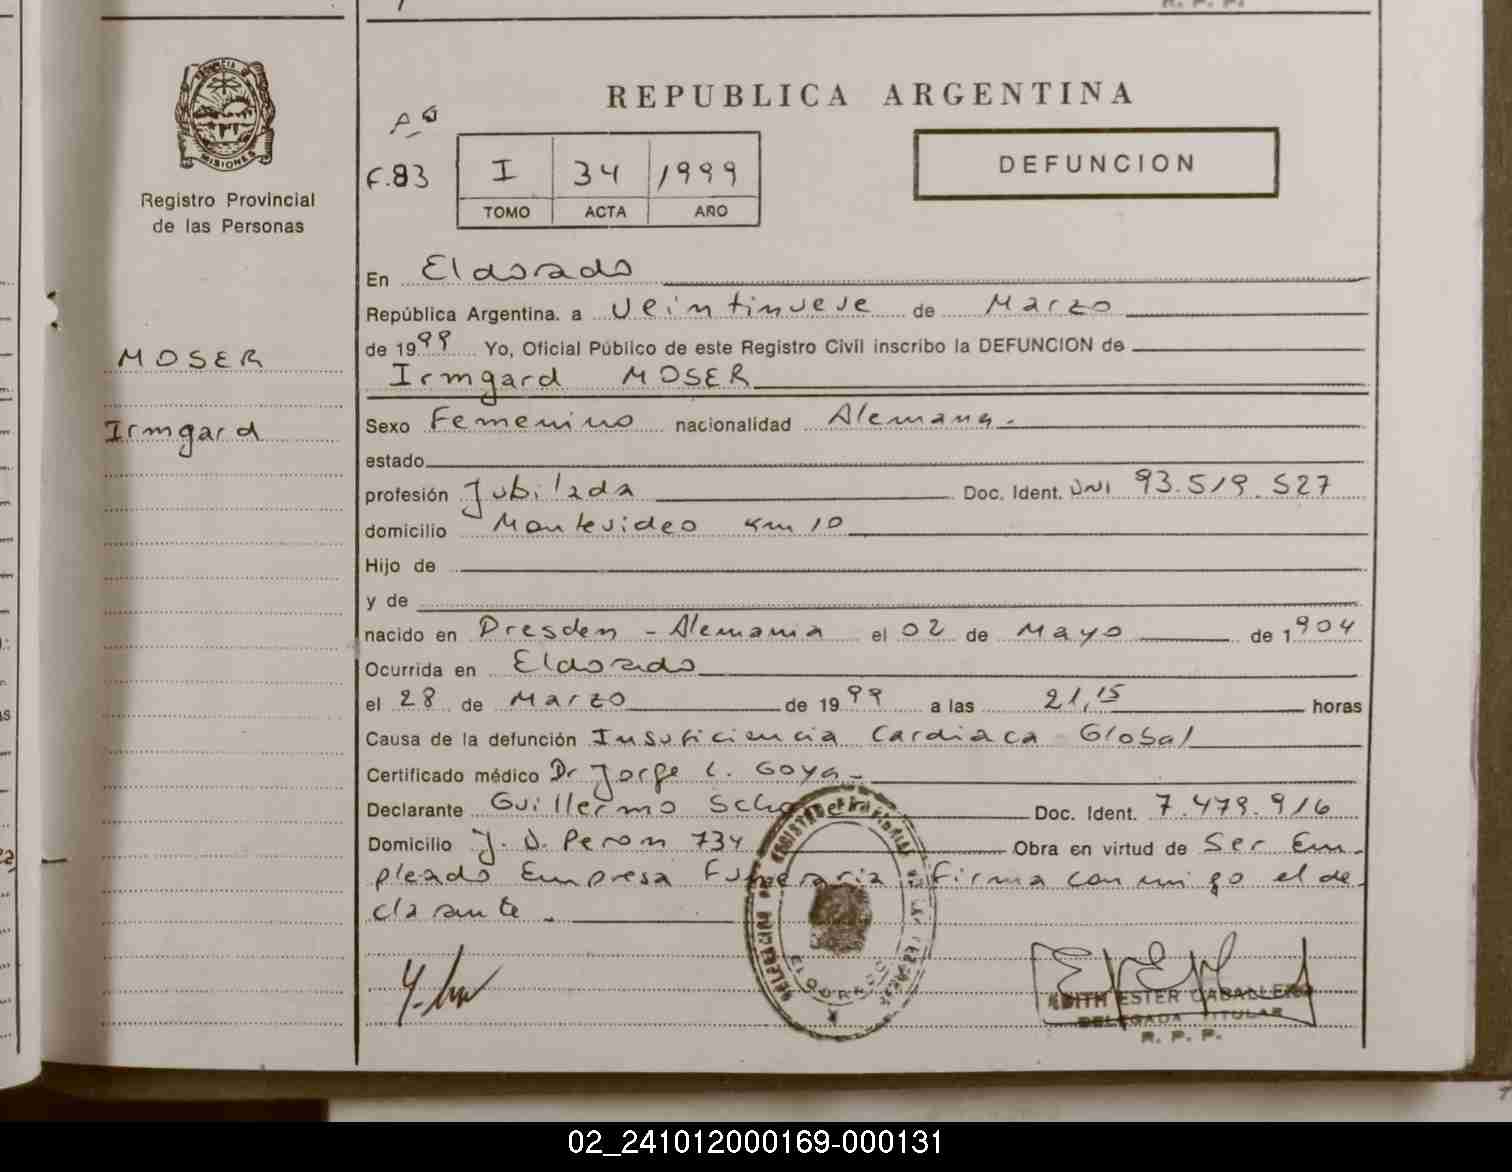 R. P. P.
PROVINCIA D MISIONES
Registro Provincial
de las Personas
MOSER
Irmgard
REPUBLICA ARGENTINA
F.83
I 34 1999
TOMO ACTA AÑO
DEFUNCION
En Eldorado
República Argentina. a Veintinueve de Marzo
de 1999 Yo, Oficial Público de este Registro Civil inscribo la DEFUNCION de
Irmgard MOSER
Sexo Femenino nacionalidad Alemana.-
estado
profesión Jubilada Doc. Ident. DNI 93.519.527
domicilio Montevideo Km 10
Hijo de
y de
nacido en Dresden - Alemania el 02 de Mayo de 1904
Ocurrida en Eldorado
el 28 de Marzo de 1999 a las 21,15 horas
Causa de la defunción Insuficiencia Cardiaca Global
Certificado médico Dr Jorge L. Goya -
Declarante Guillermo Doc. Ident. 7.479.916
Domicilio J. D. Peron 734 Obra en virtud de Ser Em-
pleado Empresa Funeraria firma conmigo el de-
clarante.-
ELDORADO
EDITH ESTER CABALLERO
DELEGADA TITULAR
R. P. P.
02_241012000169-000131